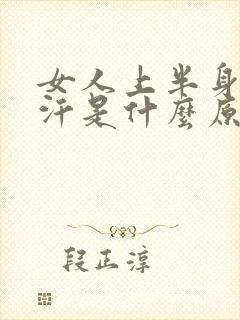 女人上半身
汗是什麼原
段正淳